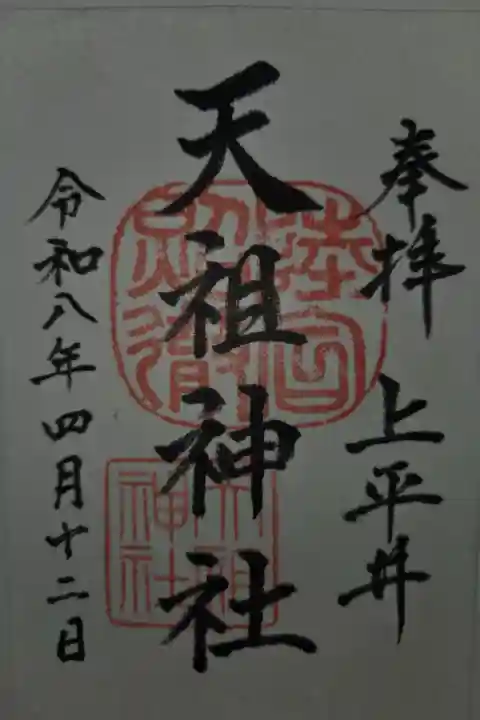 奉拝 上平井
天祖神社
令和八年四月十二日
天祖
神社